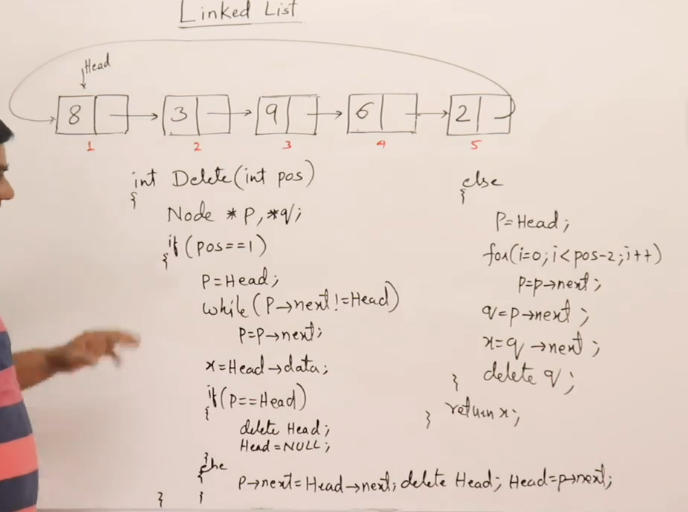 Linked List
Head
8 3 9 6 2
1 2 3 4 5
int Delete(int pos)
{
Node *P,*q;
if(pos==1)
{
P=Head;
while(P→next!=Head)
P=P→next;
x=Head→data;
if(P==Head)
{
delete Head;
Head=NULL;
}
else
{
P→next=Head→next; delete Head; Head=p→next;
}
}
else
{
P=Head;
for(i=0;i<pos-2;i++)
p=p→next;
q=p→next;
x=q→next;
delete q;
}
} return x;